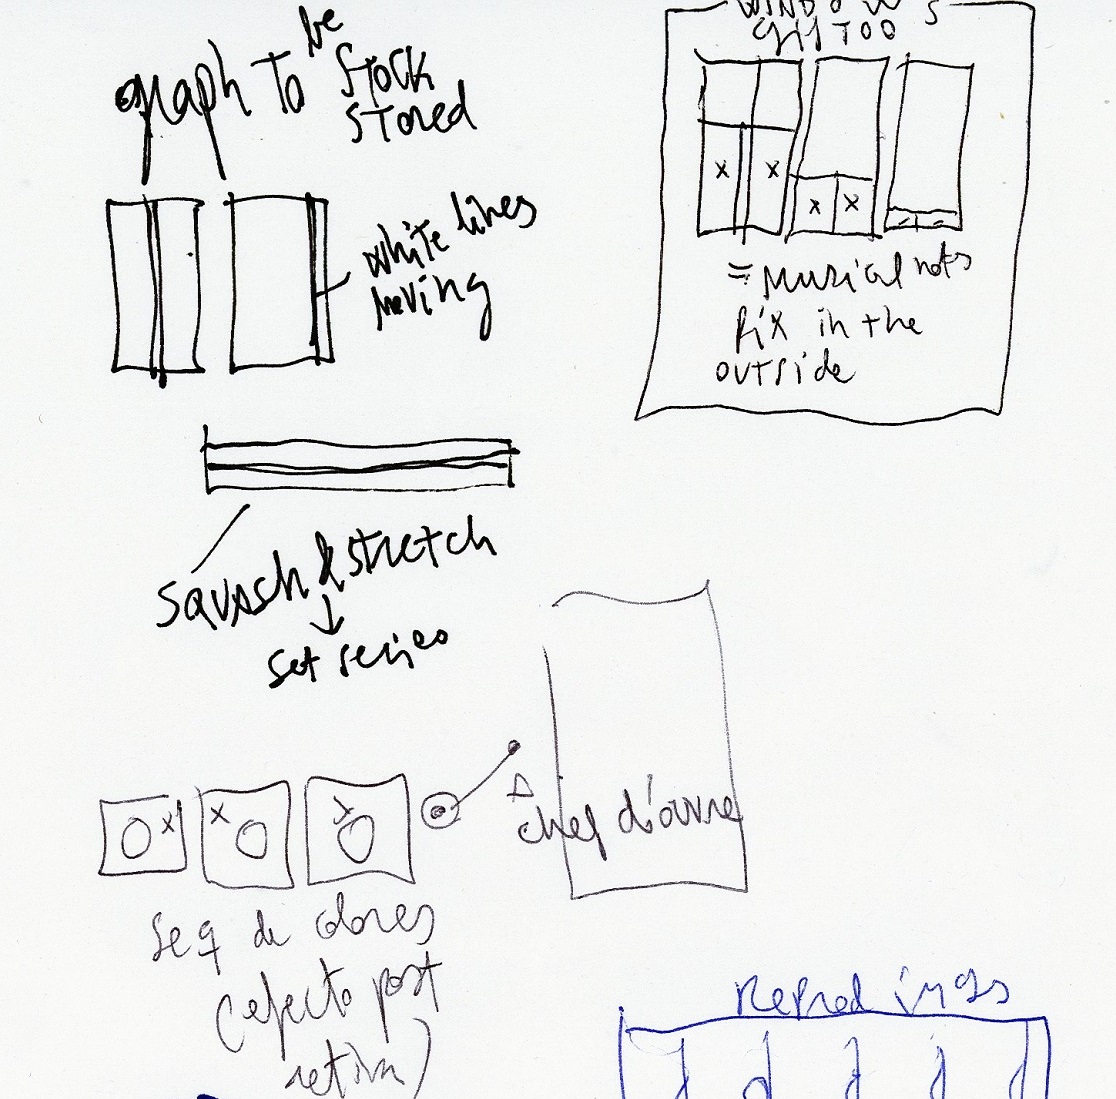 graph to be
stock
stored
white lines
moving
squash & stretch
set series
WINDOWS
= musical nots
fix in the
outside
A
chef d'ouvre
seq de colores
(efecto post
retina)
Reprod imgs